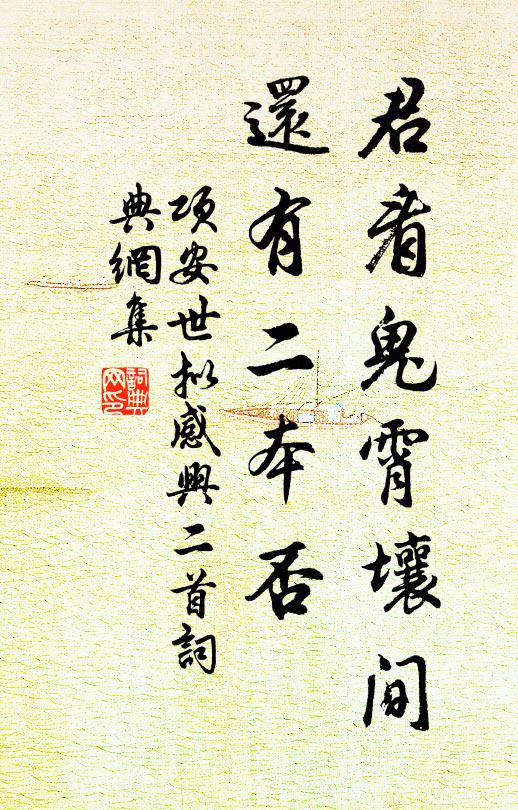 君看鬼霄壤間
還有二本否
項安世拟感興二首詞
典網集
詞典
网印